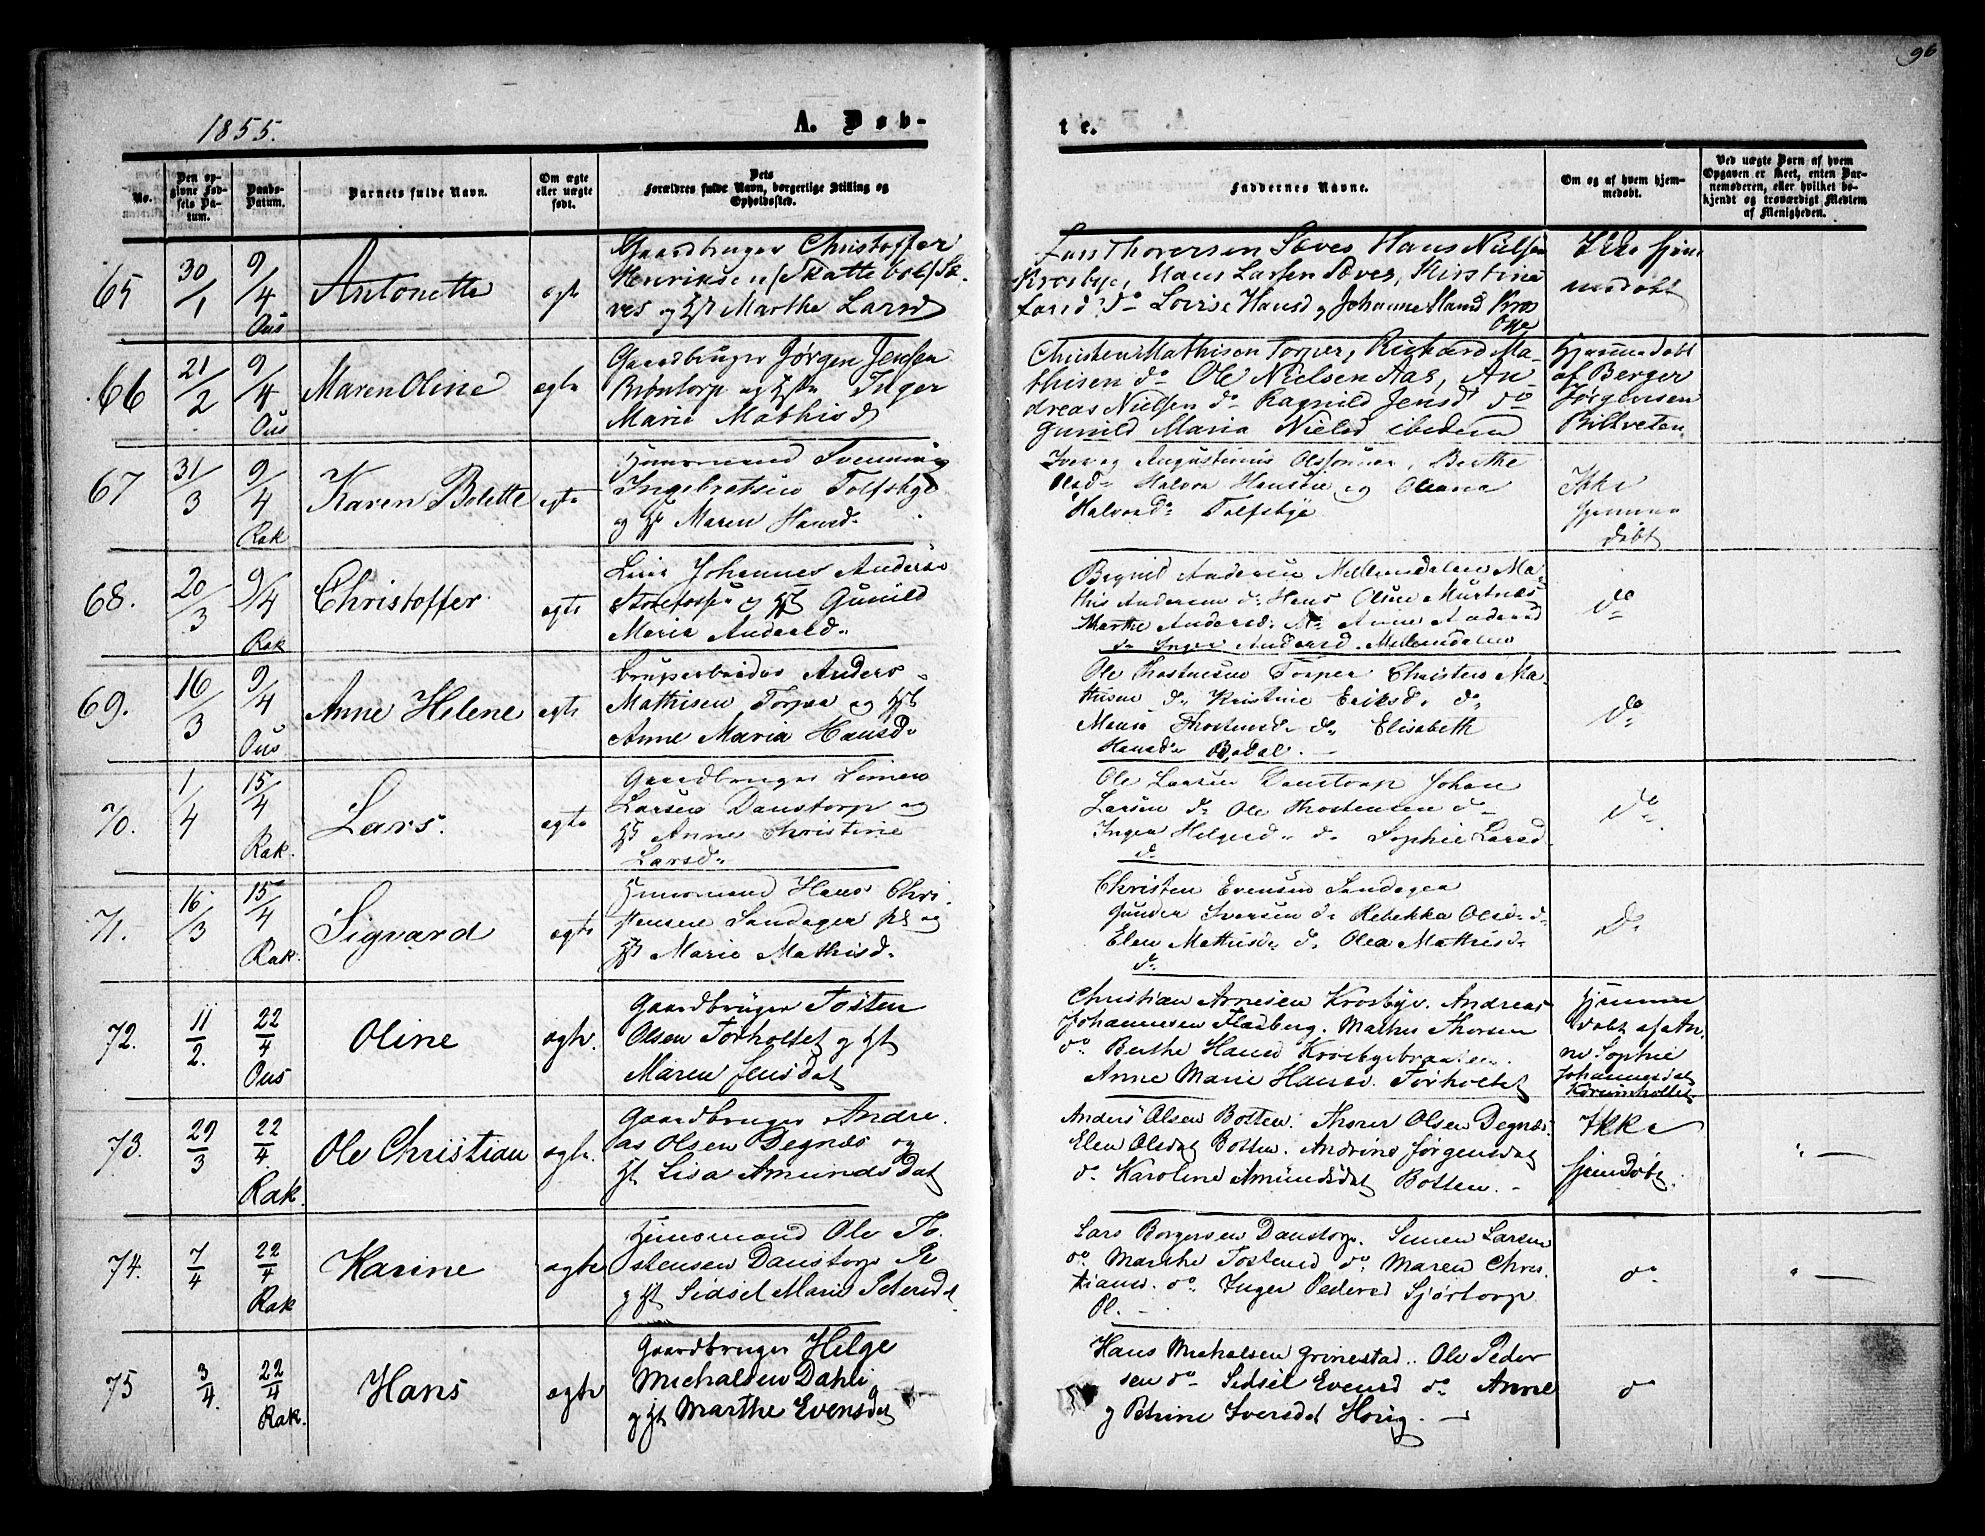 96
1855.
A. Døb-
te.
No.
Den op-
givne Fød-
sels Da-
tum.
Daabs-
Datum.
Barnets fulde Navn.
Om ægte
eller uægte
født.
Dets
Forældres fulde Navn, borgerlige Stilling og
Opholdssted.
Faddernes Navne.
Om og af hvem hjem-
medøbt.
Ved uægte Børn af hvem
Opgaven er skeet, enten Bar-
nemoderen, eller hvilket be-
kjendt og troværdigt Medlem
af Menigheden.
65
30/1
9/4
Ous
Antonette
ægte
Gaardbruger Christoffer
Henriksen
og Marthe Larsd
Hans Nielsen
Krosbye, Hans Larsen Sæves, Kirstine
Larsd do Lovise Hansd og Johanne Hansd
Ikke hjem
medøbt
66
21/2
9/4
Ous
Maren Oline
ægte
Gaardbruger Jørgen Jensen
Brøntorp og Inger
Marie Mathisd
Christen Mathisen Torper, Richard Ma-
thisen do Ole Nielsen Aas, An-
dreas Nielsen do Ragnild Jensd do
Gunild Maria Nielsd ibidem
Hjemmedøbt
af Berger
Jørgensen
67
31/3
9/4
Rak
Karen Bolette
ægte
Huusmand Svenning
Ingebretsen Tolfsbye
og Maren Hansd.
Iver og Augustinus Olssønner, Berthe
Olsd Halvor Hansen og Oleana
Halvorsd. Tolfsbye
Ikke
hjemme
døbt
68.
20/3
9/4
Rak
Christoffer
ægte
Johannes Anders-
og Gunild
Maria Andersd.
Andersen Mellemdalen Ma-
this Andersen do Hans Olsen
Marthe Andersd. do Anne Andersd
do Inger Andersd. Mellemdalen
do
69.
16/3
9/4
Ous
Anne Helene
ægte
Anders
Mathisen Torper og
Anne Maria Hansd.
Ole Thostensen Torper Christen Ma-
thisen do Kristine Eriksd. do
Maria Thostensd. do Elisabeth
Hansd.
do
70.
1/4
15/4
Rak.
Lars.
ægte
Gaardbruger Simen
Larsen Danstorp og
Anne Christine
Larsd.
Ole Larsen Danstorp Johan
Larsen do Ole Thostensen do
Inger Helgesd. do Sophie Larsd
do
do
71.
16/3
15/4
Rak.
Sigvard
ægte
Huusmand Hans Chri-
stensen Sandager Pl og
Marie Mathisd.
Christen Evensen Sandager
Gunder Iversen do Rebekka Olsd. do
Elen Mathisd. do Olea Mathisd.
do
do
72.
11/2.
22/4
Ous
Oline
ægte.
Gaardbruger Tosten
Olsen Torholtet og
Maren Jensdat
Christian Arnesen Krosbye. Andreas
Johannesen Fladberg. Mathis Thorsen
do Berthe Hansd Krosbybraaten.
Anne Marie Hansd. Torholtet
hjemme
døbt af An-
ne Sophie
Johannesdat
73.
29/3
22/4.
Rak.
Ole Christian
ægte.
Gaardbruger Andre-
as Olsen Degnæs og
Lisa Amundsdat
Anders Olsen Botten. Thorer Olsen Degnæs.
Elen Olsdat Botten. Andrine Jørgensdat
do Karoline Amundsdat Botten. -
Ikke
hjemdøbt.
" —
74.
7/4
22/4
Rak
Karine
ægte
Huusmand Ole To-
stensen Danstorp Pl
og Sidsel Marie Petersdt.
Lars Borgersen Danstorp. Simen Larsen
do. Marthe Tostensd do. Maren Chris-
tiansd. do. Inger Pedersd Sjørtorp
Pl. —
do.
" —
75
3/4.
22/4
Rak.
Hans
ægte
Gaardbruger Helge
Michalsen Dahli
og Marthe Evensdat
Hans Michalsen Grinestad.. Ole Peder
sen do Sidsel Evensd do Anne
og Petrine Iversdat Hovig. —
do